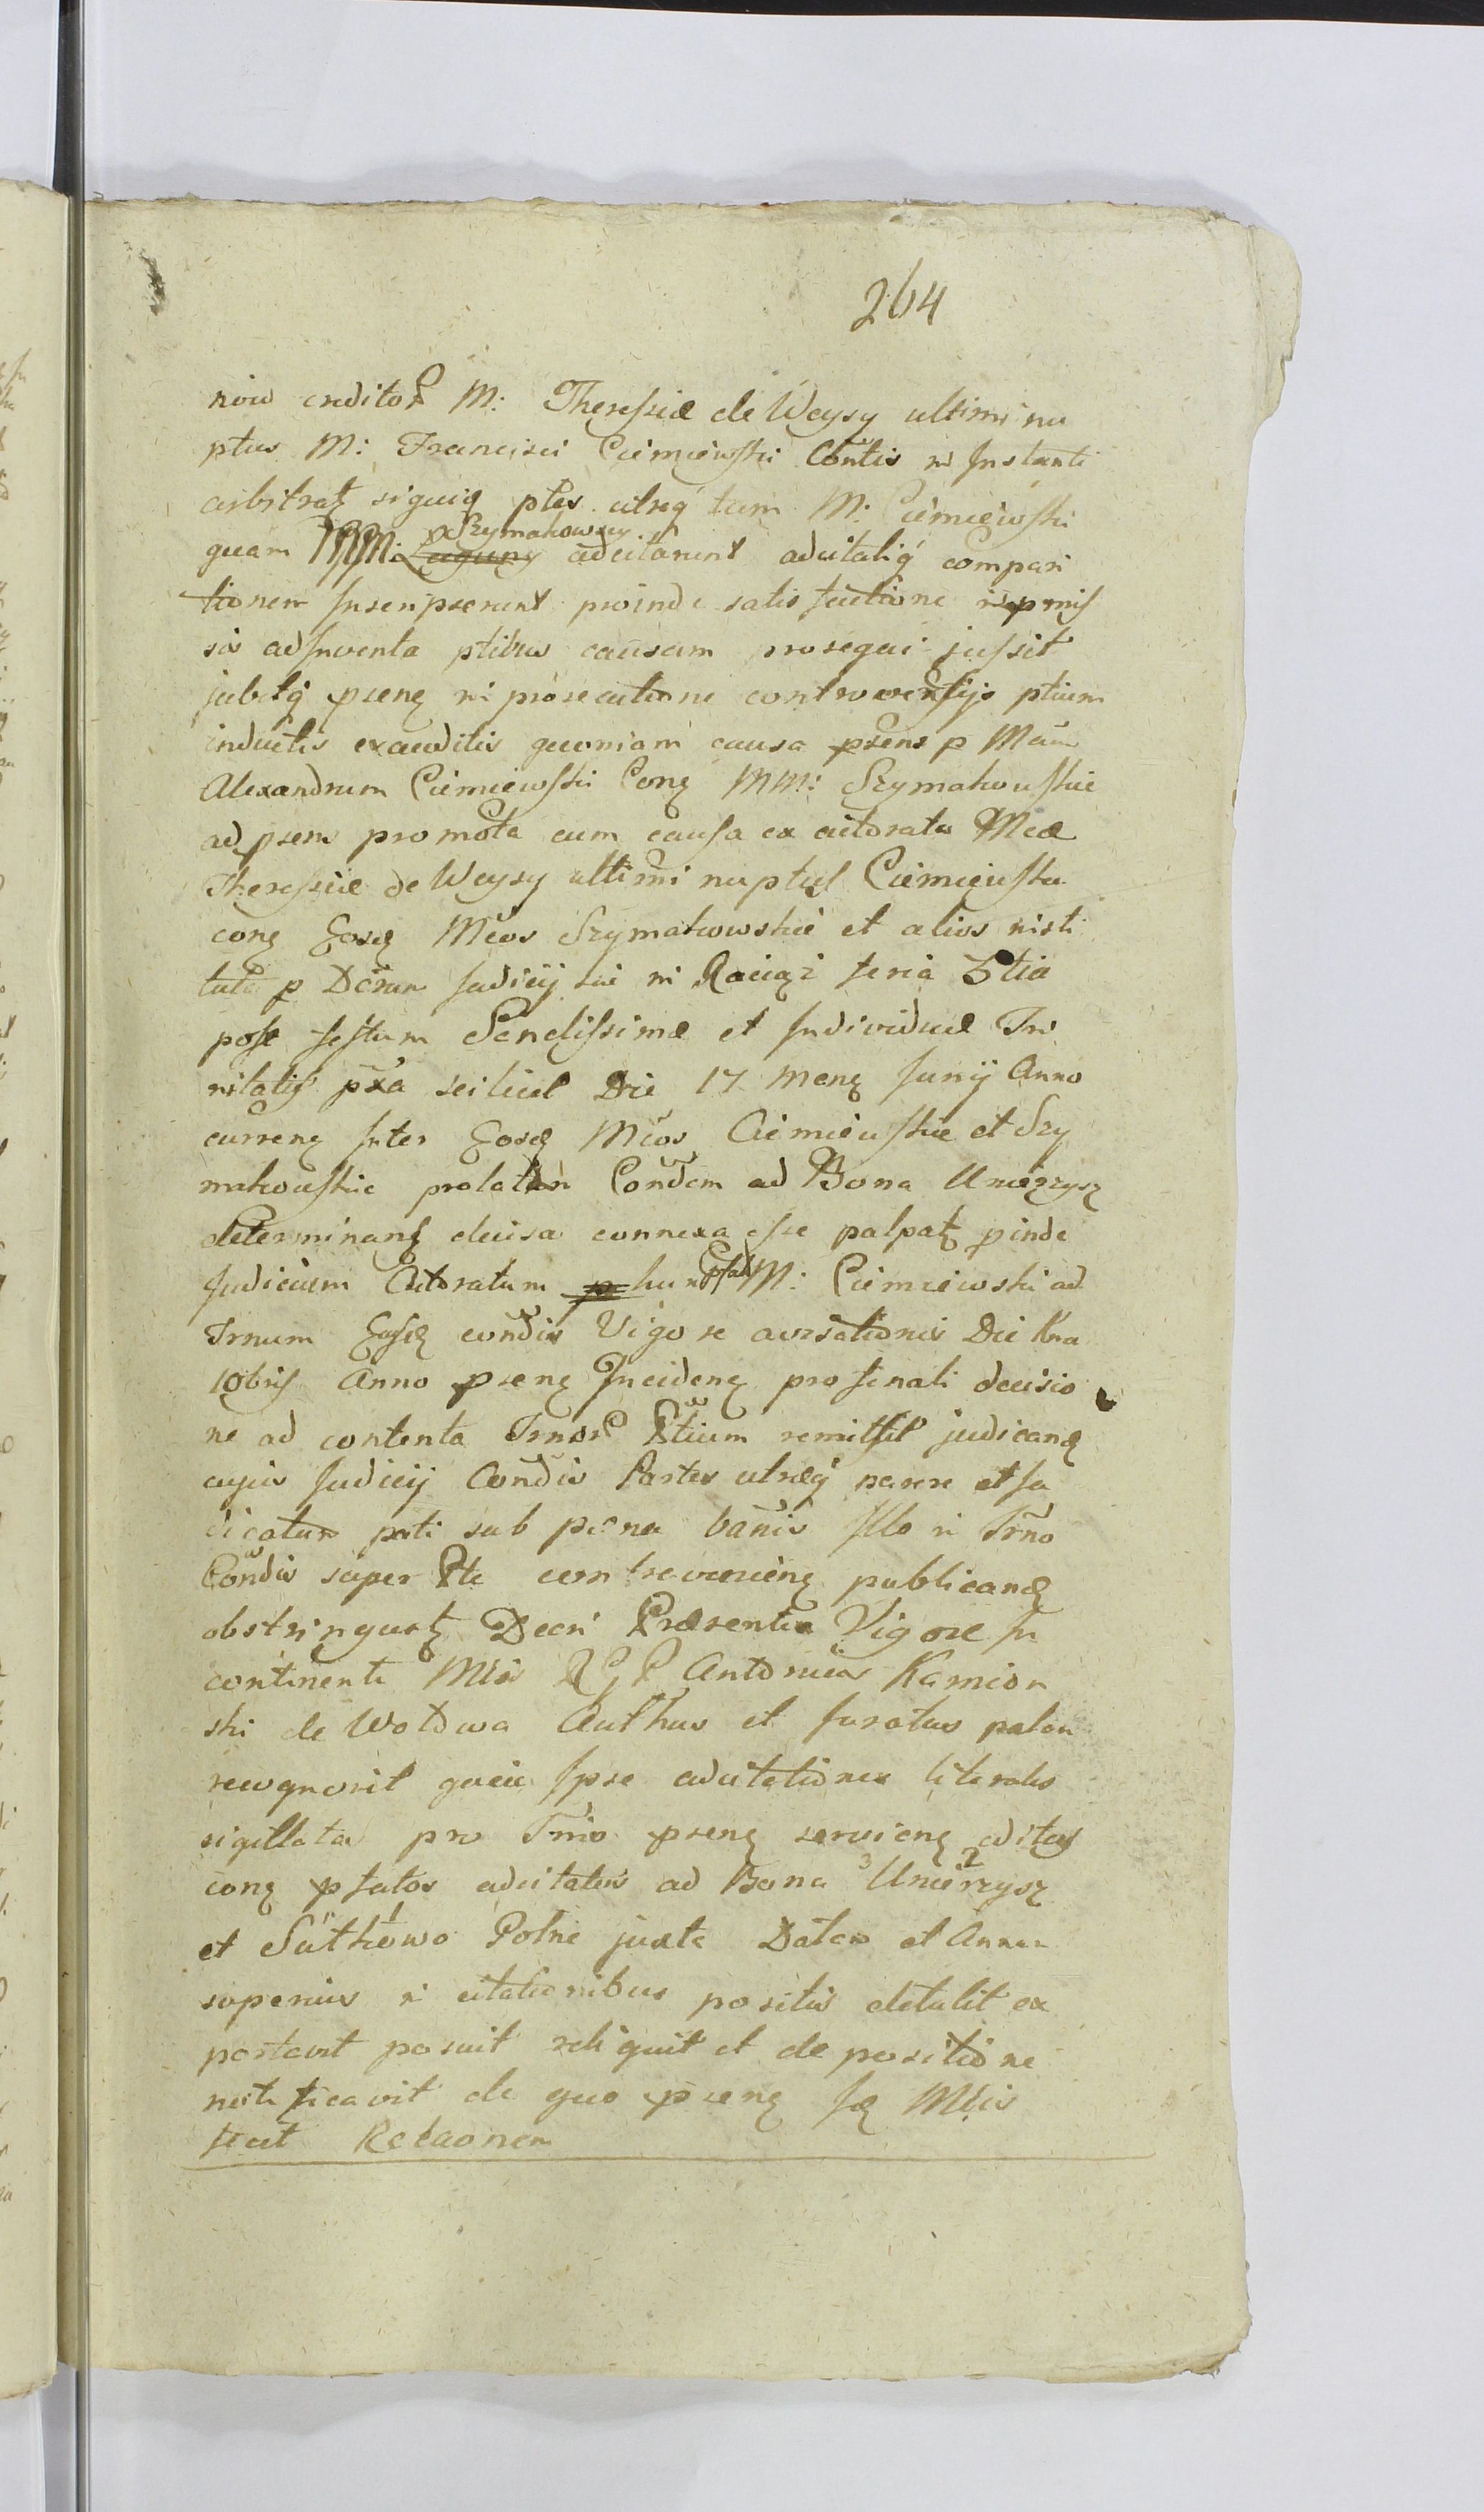 264
niow creditoR M: Theressiæ de Weysy ultimi nu
ptus M: Francisci Ciemiewski Contis ni Instanti
arbitratz siquiq ptes utreq tam M: Ciemiewski
quam MM: Szymakowscy adcitarunt adcitatiq compari
tionem Inscripserunt proinde satis factione in pmis
sis adInventa ptibus causam prosequi jussit
jubetq psenz ni prosecutione controversijs ptium
inductis exauditis quoniam causa psens p Mum
Alexandrum Ciemiewski Conz MM: Szymakowskie
ad psens promota cum causa ex actoratu Mcæ
Theressiæ de Weysy ultimi nuptæ Ciemiewska
conz Eosdz Mcos Szymakowskie et alios insti
tuta p Dcrum Judicij sui ni Raciąż feria 3tia
post festum Sanctissimæ et Individuæ Tri
nitatis pxa scilicet Die 17 menz Junij Anno
currenz Inter Eosdz Mcos Ciemiewskie et Szy
makowskie prolatum Condem ad Bona Unierzysz
determinanz decisa connexa esse palpatz pinde
Judicium Actoratum hun psati M: Ciemiewski ad
Trnum Ejusdz condis Vigore avisationis Die Kna
10bris Anno psenz Incidenz pro finali decisio
ne ad contenta TrnorR Ptium remittit judicandz
cujus Judicij Condis Partes utræq parere et Ju
dicatum pati sub pæna banis Illo ni Trno
Condis super Pte contravenienz publicandz
obstringuntz Decri Præsentis Vigore In
continenti Mtis RGP Antonius Kamion
ski de Wotowa Authus et Juratus palam
recognovit quia Ipse adcitationes literales
sigillatas pro Trno psenz servienz editas
conz pfatos adcitatos ad Bona Unierzysz
et Sutkowo Polne juxta Datas et Annum
superius ni citationibus positas detulit ex
portavit posuit reliquit et de positione
notificavit de quo psenz Jdz Mtis
fecit Relaonem